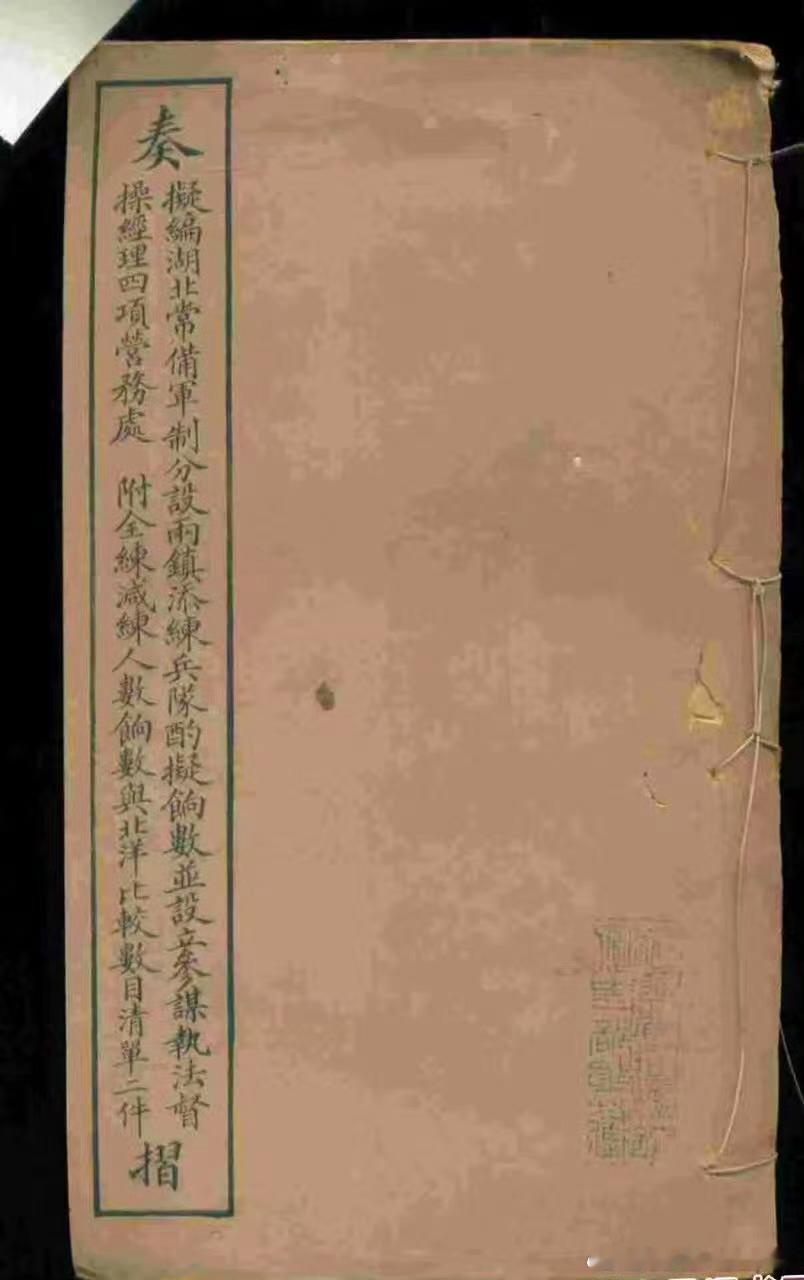 奏
擬編湖北常備軍制分設兩鎮添練兵隊酌擬餉數並設立參謀執法督
操經理四項營務處　附全練減練人數餉數與北洋比較數目清單二件
摺